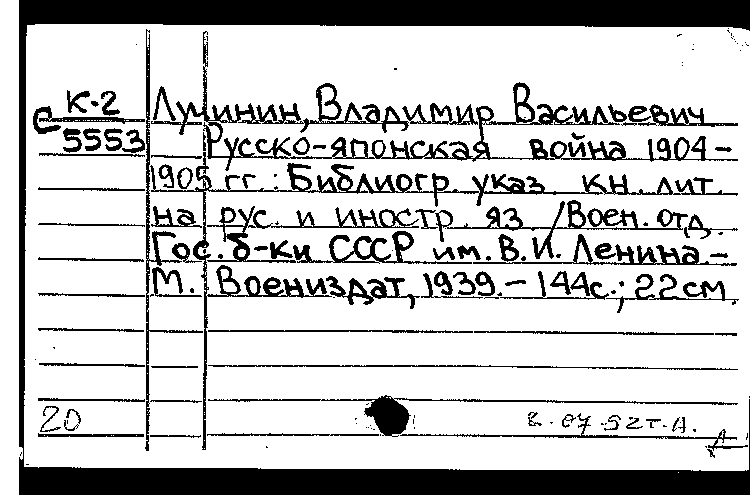 С К-2
5553
Лучинин, Владимир Васильевич
Русско-японская война 1904-
1905 гг.: Библиогр. указ. кн. лит.
на рус. и иностр. яз / Воен. отд.
Гос. б-ки СССР им. В. И. Ленина.-
М.: Воениздат, 1939.- 144с.; 22см
20